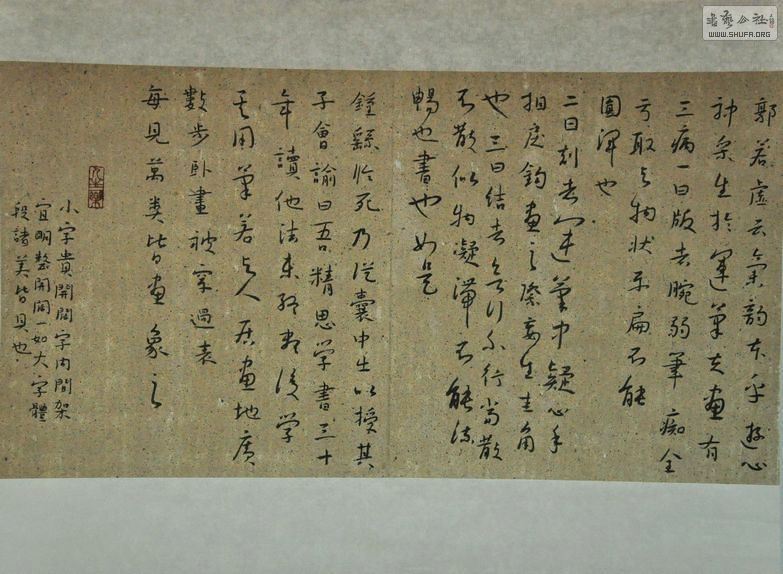 郭若虚云氣韵本乎游心
神采生於運筆夫畫有
三病一曰版者腕弱筆痴全
亏取与物狀平扁不能
圓渾也
二曰刻者運筆中疑心手
相戾鈎畫之際妄生圭角
也三曰結者欲行不行當散
不散似物凝滯不能流
暢也書也如是
鍾繇临死乃從囊中出以授其
子會諭曰吾精思學書三十
年讀他法未終盡後學
其用筆若与人居畫地廣
數步卧畫被穿過表
每見萬類皆畫象之
小字貴開闊字内間架
宜明整開闊一如大字體
段諸美皆具也
書藝公社
WWW.SHUFA.ORG